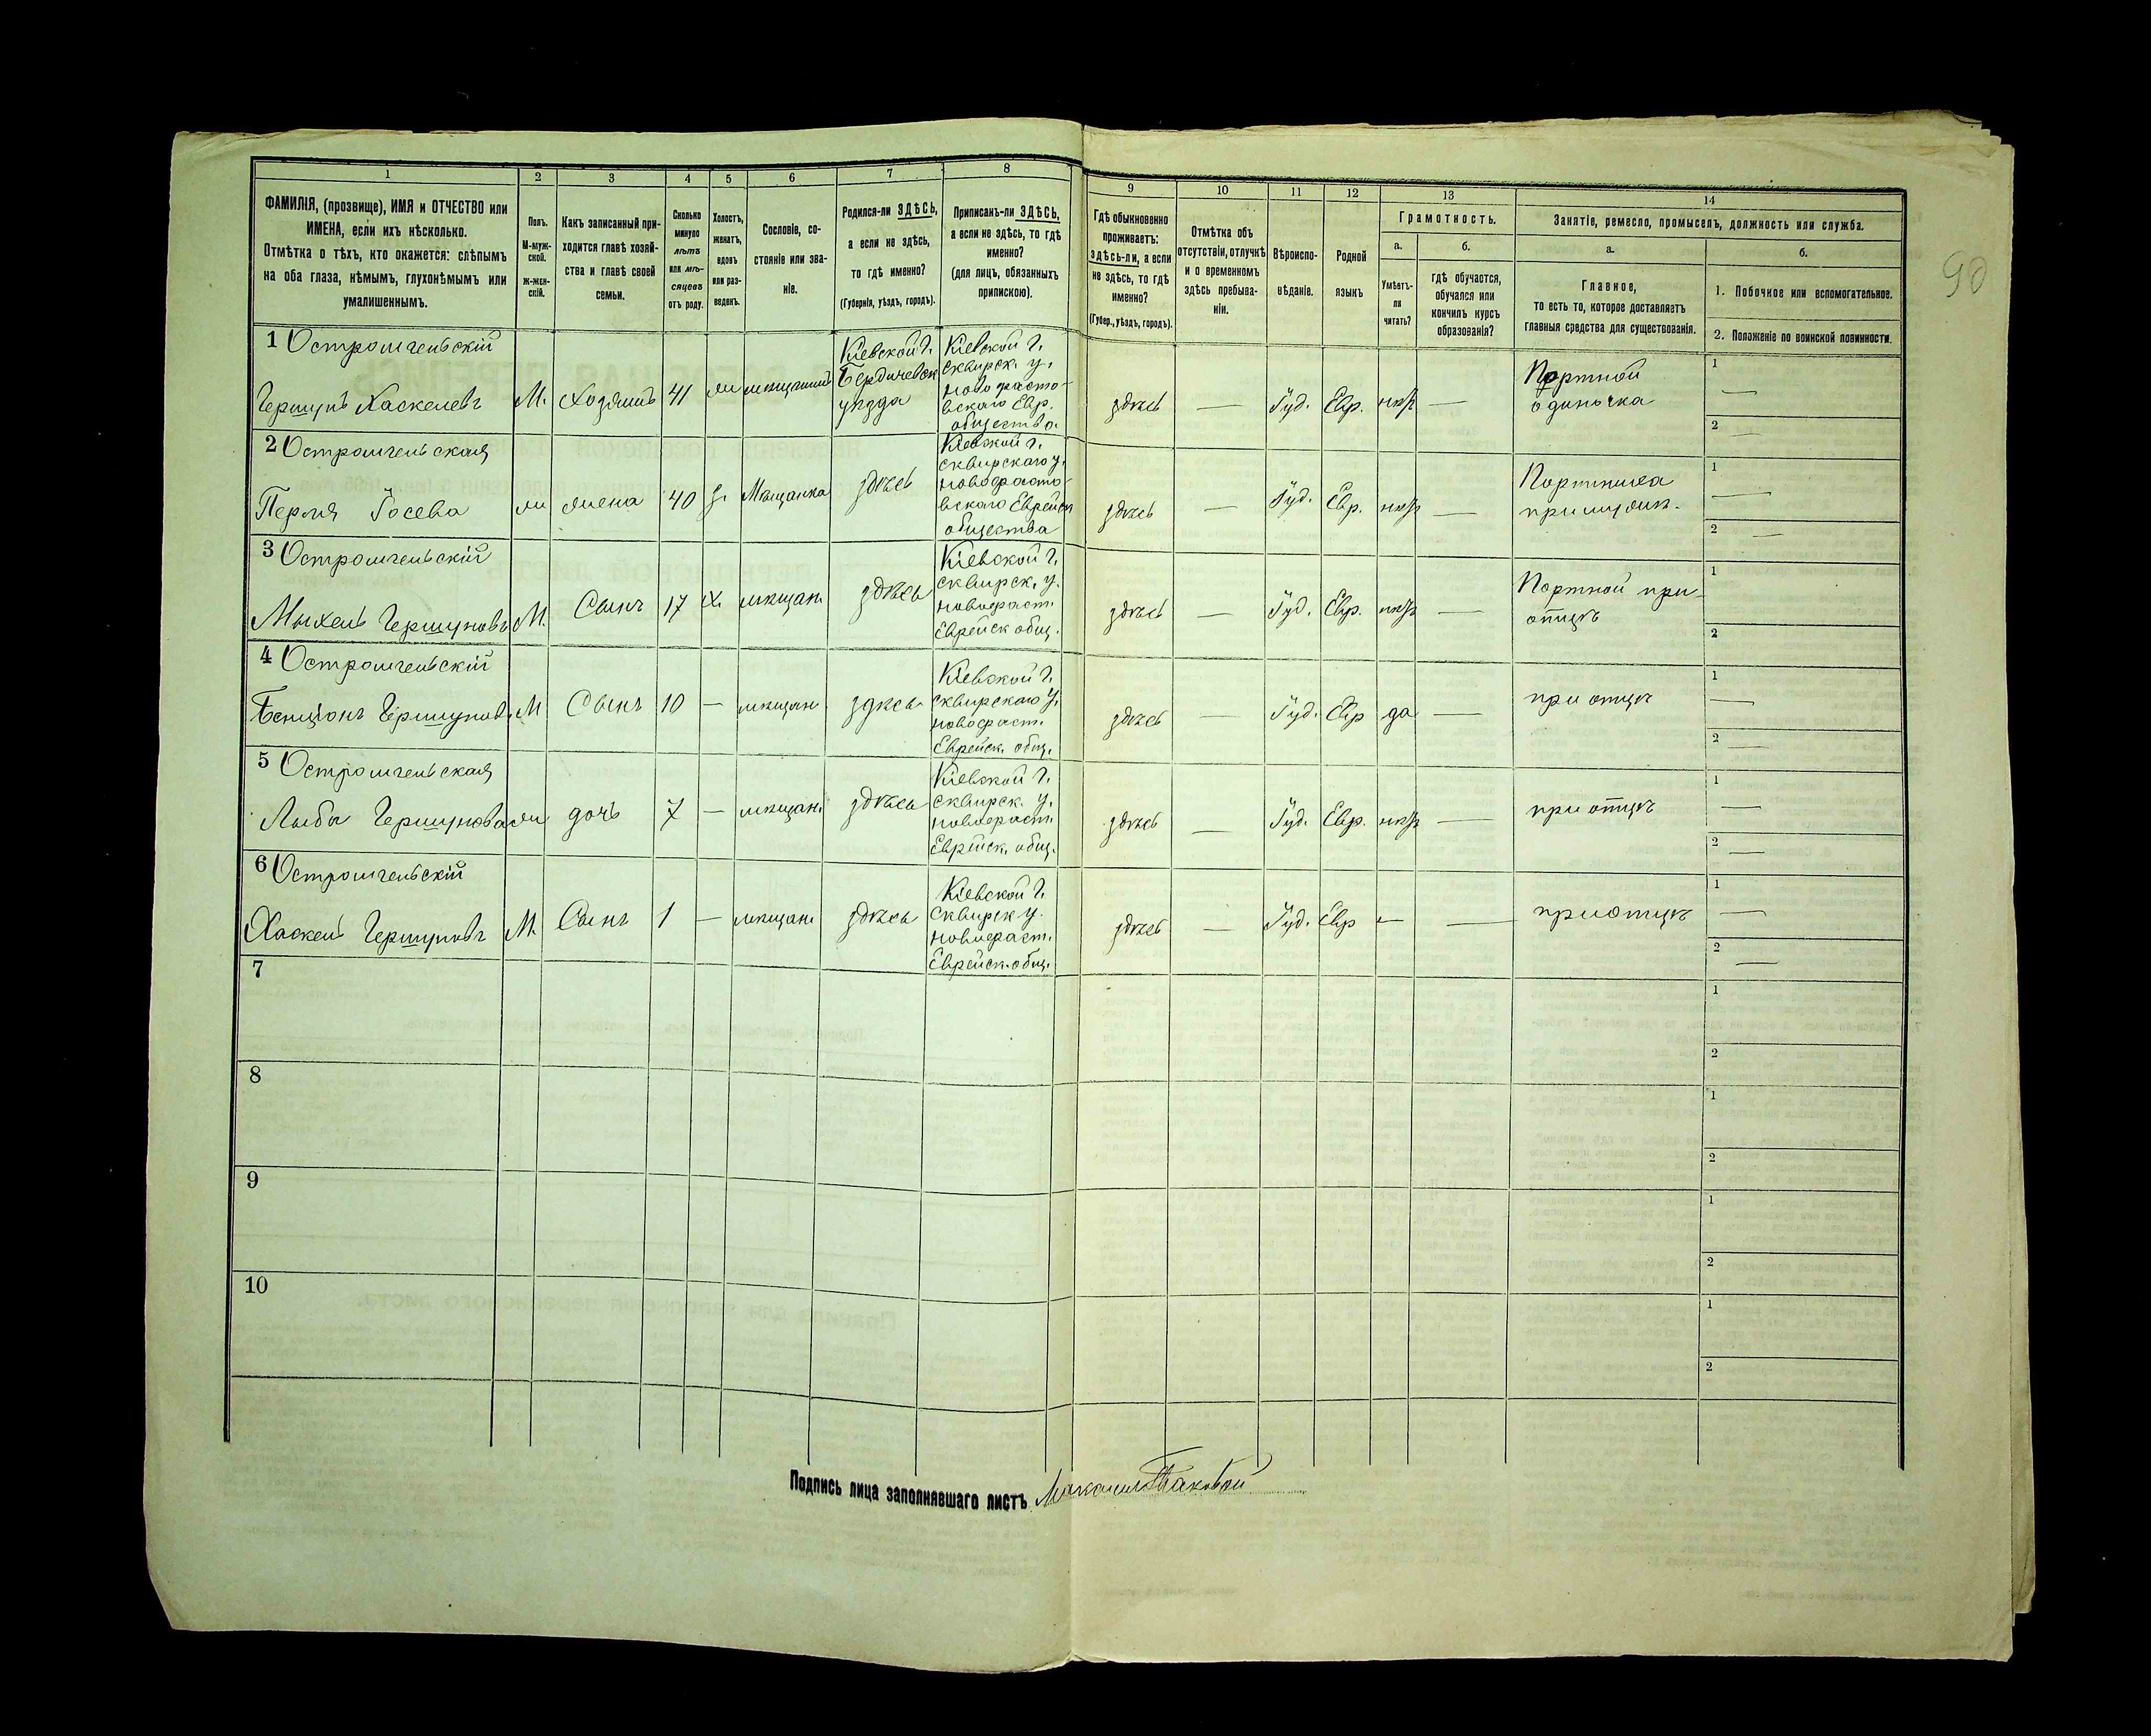 1 2 3 4 5 6 7 8 9 10 11 12 13 14
ФАМИЛІЯ, (прозвище), ИМЯ и ОТЧЕСТВО или
ИМЕНА, если ихъ нѣсколько.
Отмѣтка о тѣхъ, кто окажется: слѣпымъ
на оба глаза, нѣмымъ, глухонѣмымъ или
умалишеннымъ.
Полъ.
М-муж-
ской.
Ж-жен-
скій.
Какъ записанный при-
ходится главѣ хозяй-
ства и главѣ своей
семьи.
Сколько
минуло
лѣтъ
или мѣ-
сяцевъ
отъ роду.
Холостъ,
женатъ,
вдовъ
или раз-
веденъ.
Сословіе, со-
стояніе или зва-
ніе.
Родился-ли ЗДѢСЬ,
а если не здѣсь,
то гдѣ именно?
(Губернія, уѣздъ, городъ).
Приписанъ-ли ЗДѢСЬ,
а если не здѣсь, то гдѣ
именно?
(для лицъ, обязанныхъ
припискою).
Гдѣ обыкновенно
проживаетъ:
здѣсь-ли, а если
не здѣсь, то гдѣ
именно?
(Губер., уѣздъ, городъ).
Отмѣтка объ
отсутствіи, отлучкѣ
и о временномъ
здѣсь пребыва-
ніи.
Вѣроиспо-
вѣданіе.
Родной
языкъ
Грамотность.
а.
Умѣетъ-
ли
читать?
б.
гдѣ обучается,
обучался или
кончилъ курсъ
образованія?
Занятіе, ремесло, промыселъ, должность или служба.
а.
Главное,
то есть то, которое доставляетъ
главныя средства для существованія.
б.
1. Побочное или вспомогательное.
2. Положеніе по воинской повинности.
90
1 Остромгельскій
Гершунъ Хаскелевъ
М.
Хозяинъ
41
ж
мѣщанинъ
Кіевской г.
Бердичевск
уѣзда
Кіевской г.
Сквирск. у.
новофасто-
вскаго Евр.
общества
здѣсь
—
Іуд.
Евр.
нѣтъ
—
Портной
одиночка
1 —
2 —
2 Остромгельская
Перля Іосева
ж
жена
40
з.
Мѣщанка
здѣсь
Кіевской г.
Сквирскаго у.
новофасто-
вскаго Еврейск
общества
здѣсь
—
Іуд.
Евр.
нѣтъ
—
Портниха
при мужѣ.
1 —
2 —
3 Остромгельскій
Мыхель Гершуновъ
М.
Сынъ
17
х.
мѣщан.
здѣсь
Кіевской г.
Сквирск. у.
новофаст.
Еврейск общ.
здѣсь
—
Іуд.
Евр.
нѣтъ
—
Портной при
отцѣ
1
2
4 Остромгельскій
Бенціонъ Гершунов.
М
Сынъ
10
—
мѣщан
здѣсь
Кіевской г.
Сквирскаго у.
новофаст.
Еврейск. общ.
здѣсь
—
Іуд.
Евр
да
—
при отцѣ
1 —
2 —
5 Остромгельская
Лыба Гершунова
ж
дочь
7
—
мѣщан.
здѣсь
Кіевской г.
Сквирск. у.
новофаст.
Еврейск. общ.
здѣсь
—
Іуд.
Евр.
нѣтъ
—
при отцѣ
1 —
2 —
6 Остромгельскій
Хаскель Гершуновъ
М.
Сынъ
1
—
мѣщан
здѣсь
Кіевской г.
Сквирск у.
новофаст.
Еврейск. общ.
здѣсь
—
Іуд.
Евр
—
—
при отцѣ
1 —
2 —
7
1
2
8
1
2
9
1
2
10
1
2
Подпись лица заполнявшаго листъ